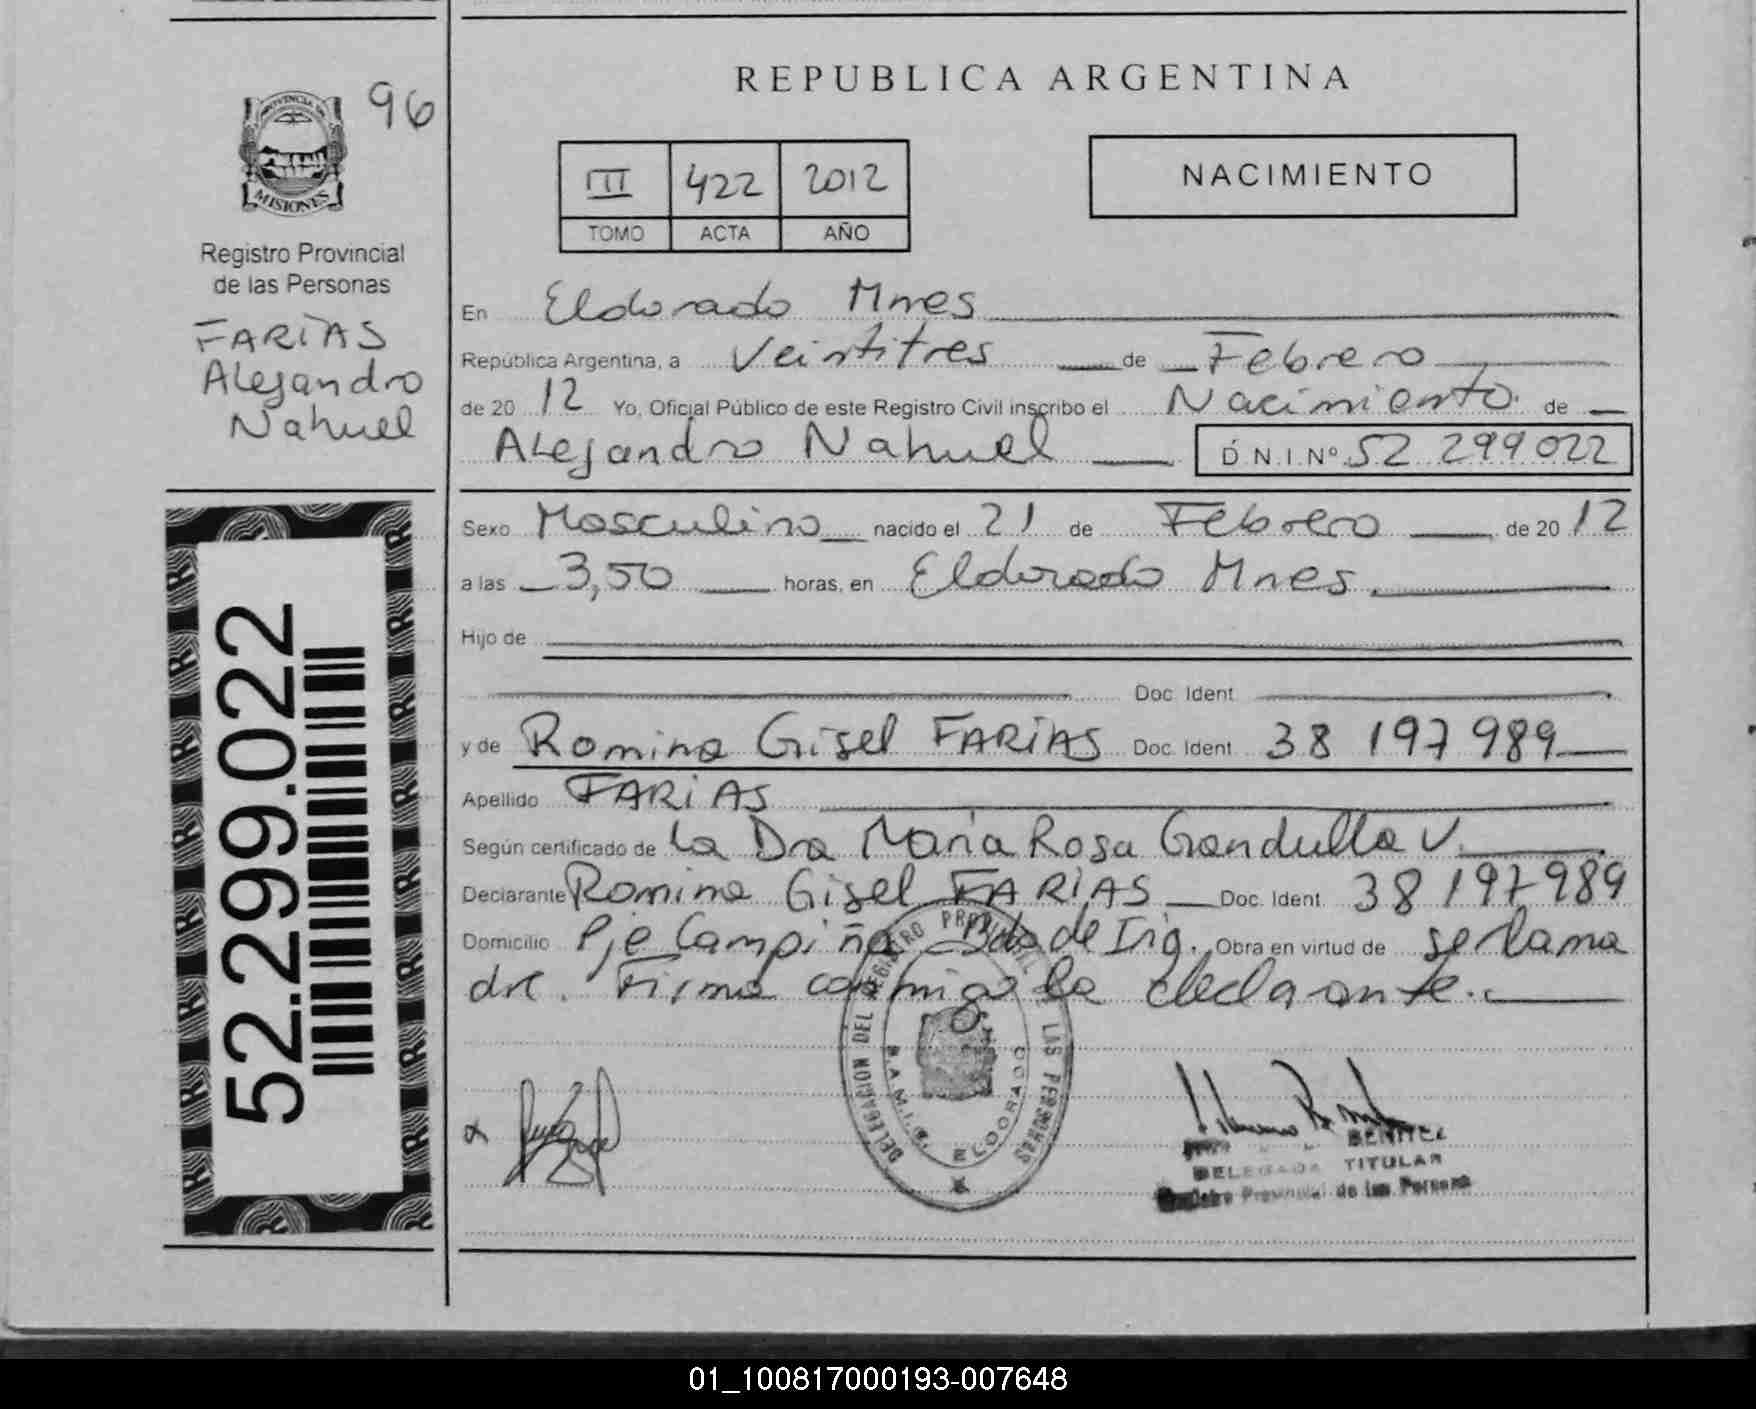 REPUBLICA ARGENTINA
96
PROVINCIA DE
MISIONES
Registro Provincial
de las Personas
FARIAS
Alejandro
Nahuel
52.299.022
III 422 2012
TOMO ACTA AÑO
NACIMIENTO
En Eldorado Mnes
República Argentina, a Veintitres de Febrero
de 20 12 Yo, Oficial Público de este Registro Civil inscribo el Nacimiento de
Alejandro Nahuel D.N.I.Nº 52 299 022
Sexo Masculino nacido el 21 de Febrero de 20 12
a las 3,50 horas, en Eldorado Mnes
Hijo de
Doc. Ident
y de Romina Gisel FARIAS Doc. Ident 38 197 989
Apellido FARIAS
Según certificado de La Dra Maria Rosa Gandulla V.
Declarante Romina Gisel FARIAS Doc. Ident. 38 197 989
Domicilio Pje Campiña de Irig. Obra en virtud de ser la ma
dre. Firma conmigo la declarante.
DELEGACION DEL REGISTRO PROVINCIAL DE LAS PERSONAS
ELDORADO
BENITEZ
DELEGADA TITULAR
Registro Provincial de las Personas
01_100817000193-007648